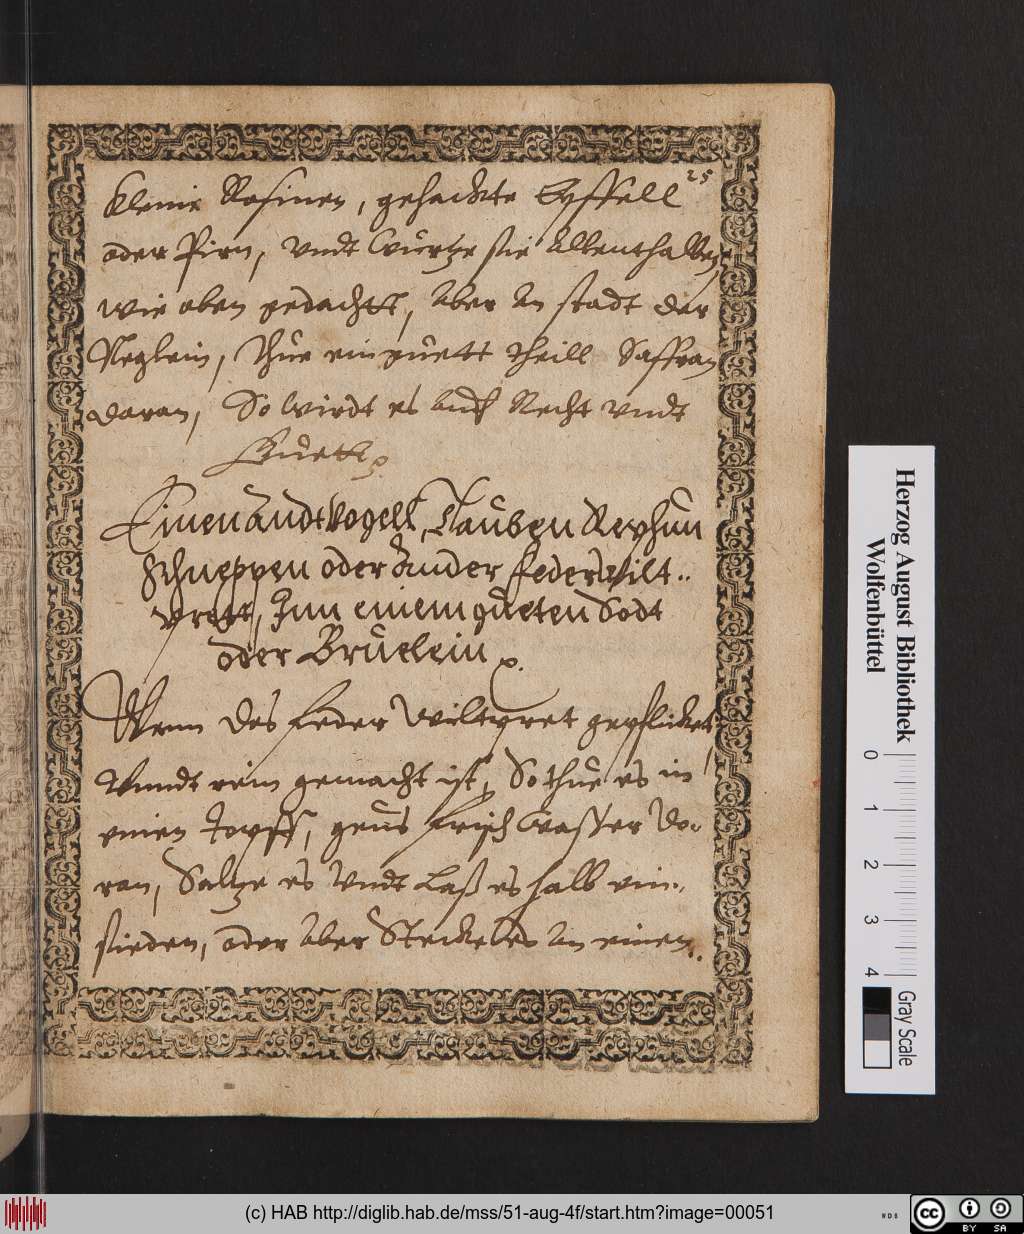 25
kleine Rosinen, gehackte Epffell
oder Pirn, vndt Wurtze sie Allenthalben
wie oben gedachtt, Aber An stadt der
Neglein, Thue ein guett theill Saffran
daran, So wirdt es Auch Recht vndt
Guett
Einen Andt Vogell, Tauben Rephun
Schneppen oder Ander Federwilt..
prett, Inn einem gueten Sodt
oder Bruelein
Wenn des Feder Wiltpret gepflicket,
Vnndt rein gemacht ist, So thue es in
einen Topff, geus frisch Wasser do..
ran, Saltze es Vndt Laß es halb ein..
sieden, oder Aber Stecke es An einen..
Herzog August Bibliothek
Wolfenbüttel
0 1 2 3 4
Gray Scale
(c) HAB http://diglib.hab.de/mss/51-aug-4f/start.htm?image=00051
WDB
cc BY SA